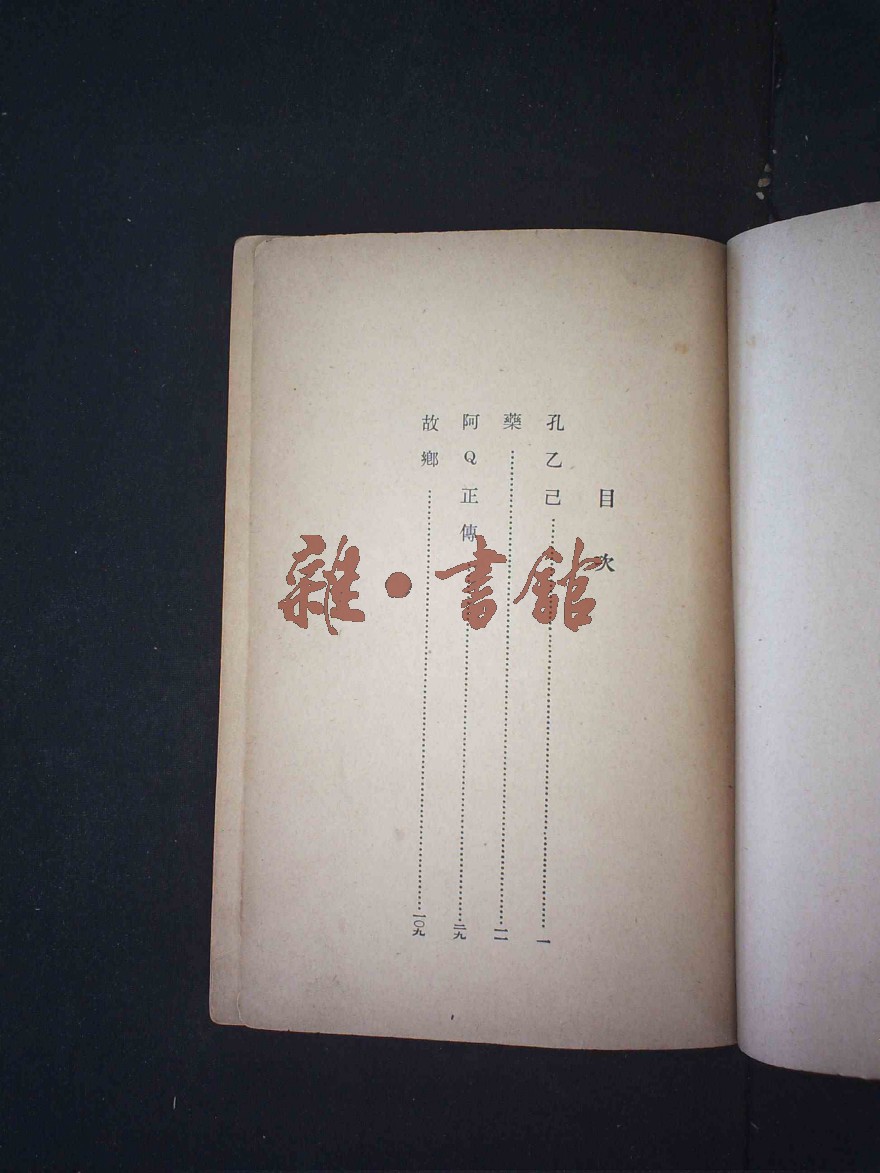 目次
孔乙己……一
藥……一一
阿Q正傳……二九
故鄉……一〇九
雜•書館